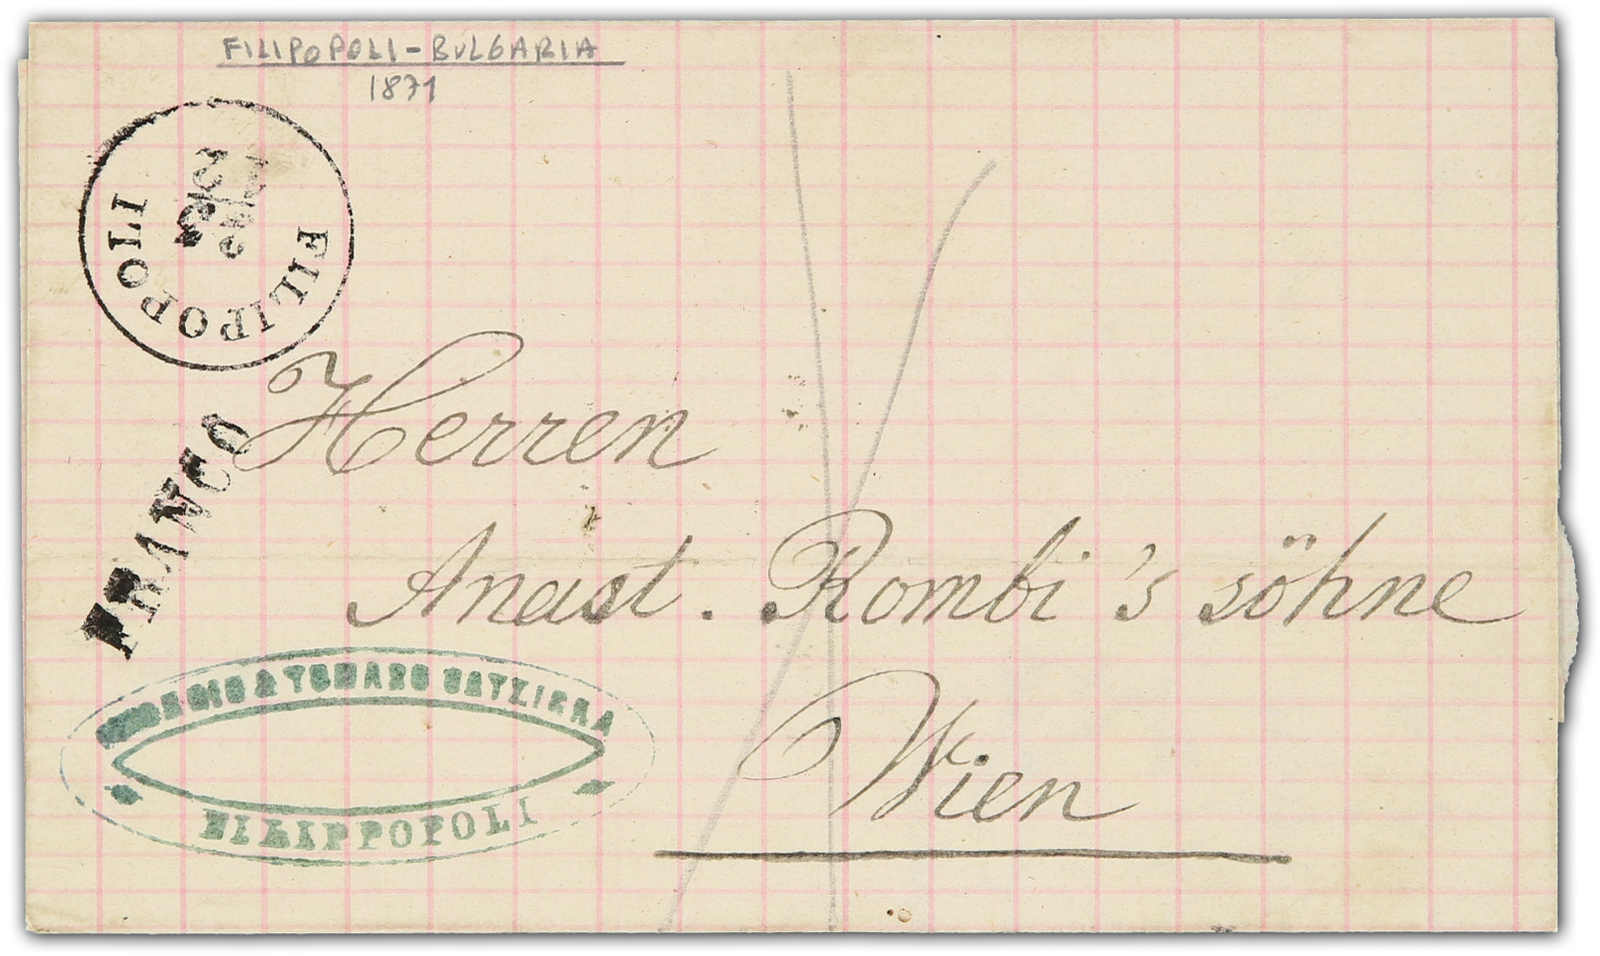 FILIPOPOLI - BULGARIA
1871
FILIPOPOLI
FRANCO
Herren
Anast. Rombi's söhne
Wien
& TOMASO
FILIPPOPOLI